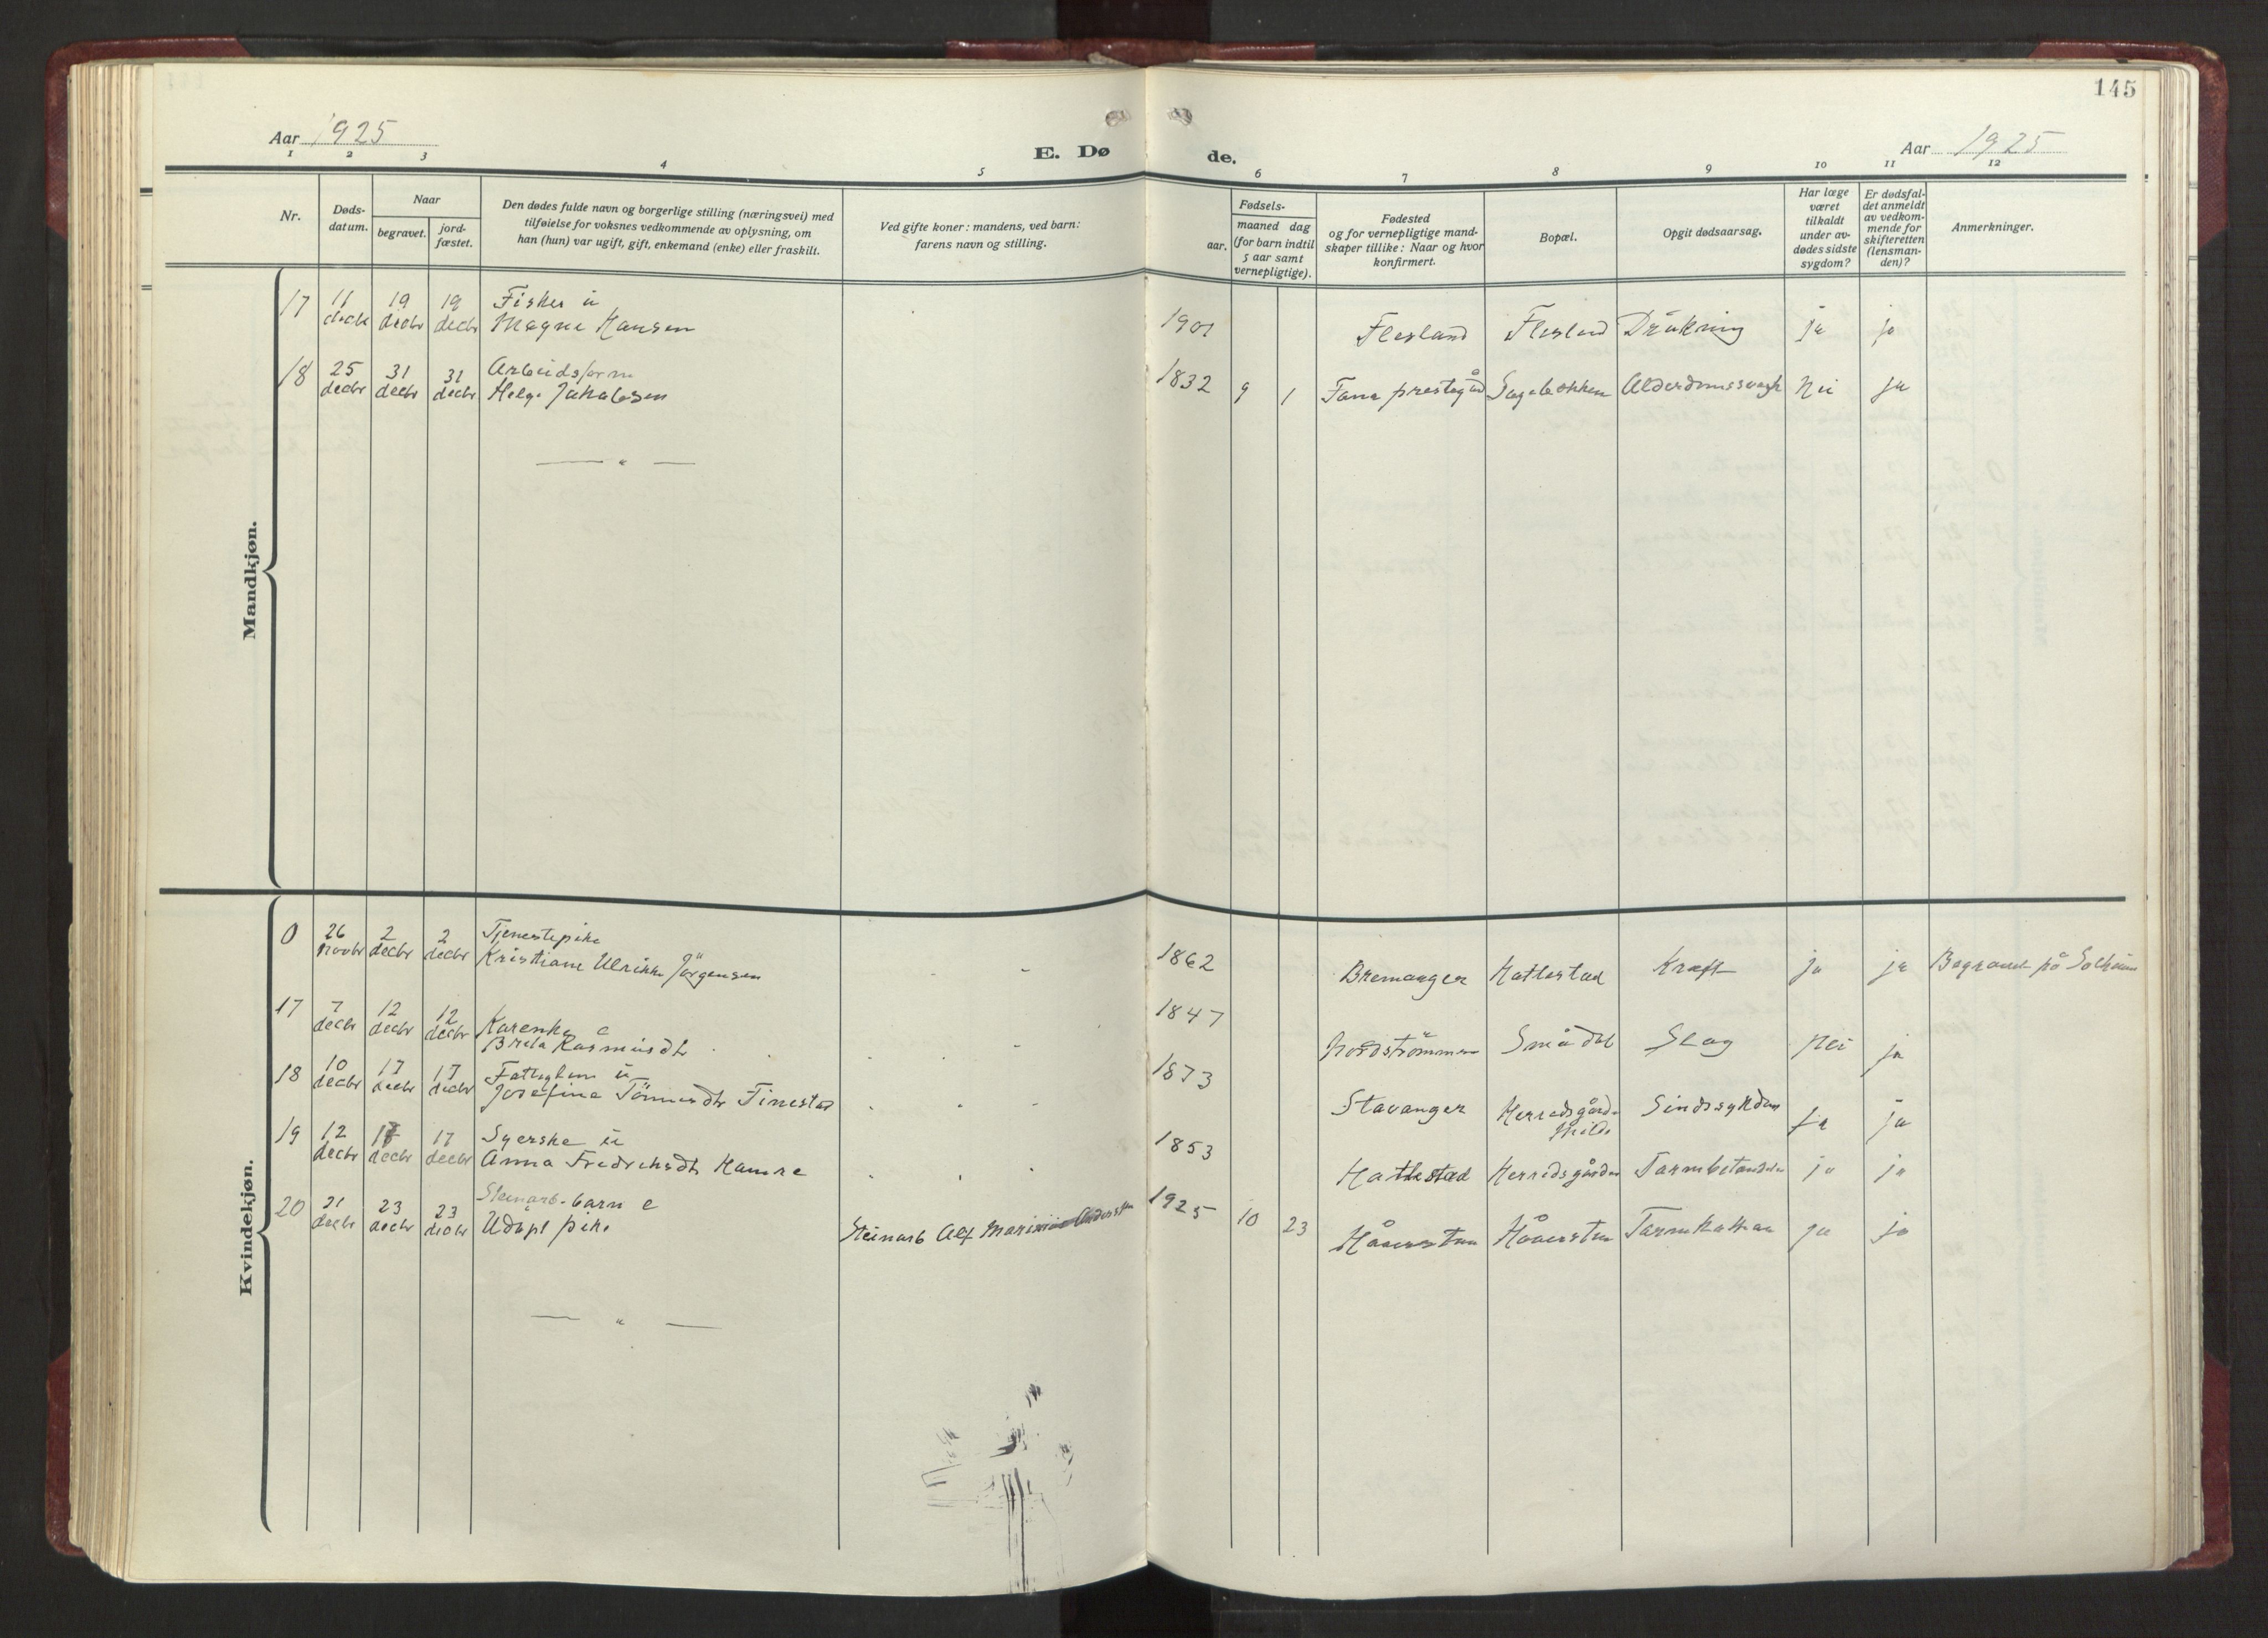 145
Aar 1925
E. Dø
de.
Aar 1925
1 2 3 4 5 6 7 8 9 10 11 12
Nr.
Døds-
datum.
Naar
begravet.
jord-
fæstet.
Den dødes fulde navn og borgerlige stilling (næringsvei) med
tilføielse for voksnes vedkommende av oplysning, om
han (hun) var ugift, gift, enkemand (enke) eller fraskilt.
Ved gifte koner: mandens, ved barn:
farens navn og stilling.
Fødsels-
aar.
maaned dag
(for barn indtil
5 aar samt
vernepligtige).
Fødested
og for vernepligtige mand-
skaper tillike: Naar og hvor
konfirmert.
Bopæl.
Opgit dødsaarsag.
Har læge
været
tilkaldt
under av-
dødes sidste
sygdom?
Er dødsfal-
det anmeldt
av vedkom-
mende for
skifteretten
(lensman-
den)?
Anmerkninger.
Mandkjøn.
17 11 19 19 Fisker u
decbr decbr decbr Magne Hansen 1901 Flesland Flesland Drukning ja ja
18 25 31 31
decbr decbr decbr Helge Jakobsen 1832 9 1 Fana prestegård Nei ja
— " —
Kvindekjøn.
0 26 2 2 Tjenestepike
novbr decbr decbr Kristiane Ulrikke Jörgensen - 1862 Bremanger Hattestad Kræft ja ja Begravet på Solheim
17 7 12 12 Kårenke e
decbr decbr decbr Brita Rasmusdtr - 1847 Nordströmmen Smådal Slag Nei ja
18 10 17 17 Fattiglem u
decbr decbr decbr Josefina Tönnesdtr Finestad - 1873 Stavanger Herredsgården Sindssykdom ja ja
19 12 17 17 Syerske u
decbr decbr decbr Anna Fredriksdtr Hamre 1853 Hattestad Herredsgården Tarmbetændelse ja ja
20 21 23 23 Steinarb. barn e
decbr decbr decbr Udøpt pike Steinarb Alf Andersen 1925 10 23 Tarmkatar ja ja
— " —